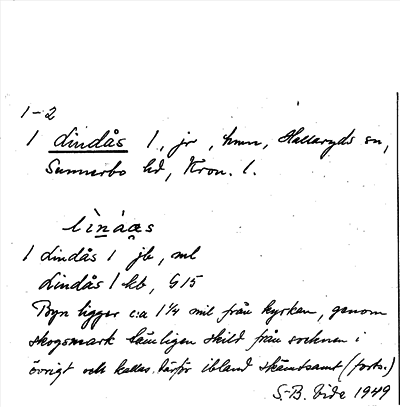 1-2
1 Lindås 1, jr, hmn, Hallaryds sn,
Sunnerbo hd, Kron. l.
lìnáas
1 Lindås 1 jb, ml
Lindås 1 kb, G15
Byn ligger c:a 1 1/4 mil från kyrkan, genom
skogsmark tämligen skild från socknen i
övrigt och kallas därför ibland skämtsamt (forts.)
S-B. Vide 1949